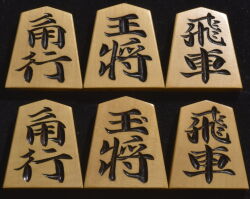 角行 王将 飛車
角行 玉将 飛車